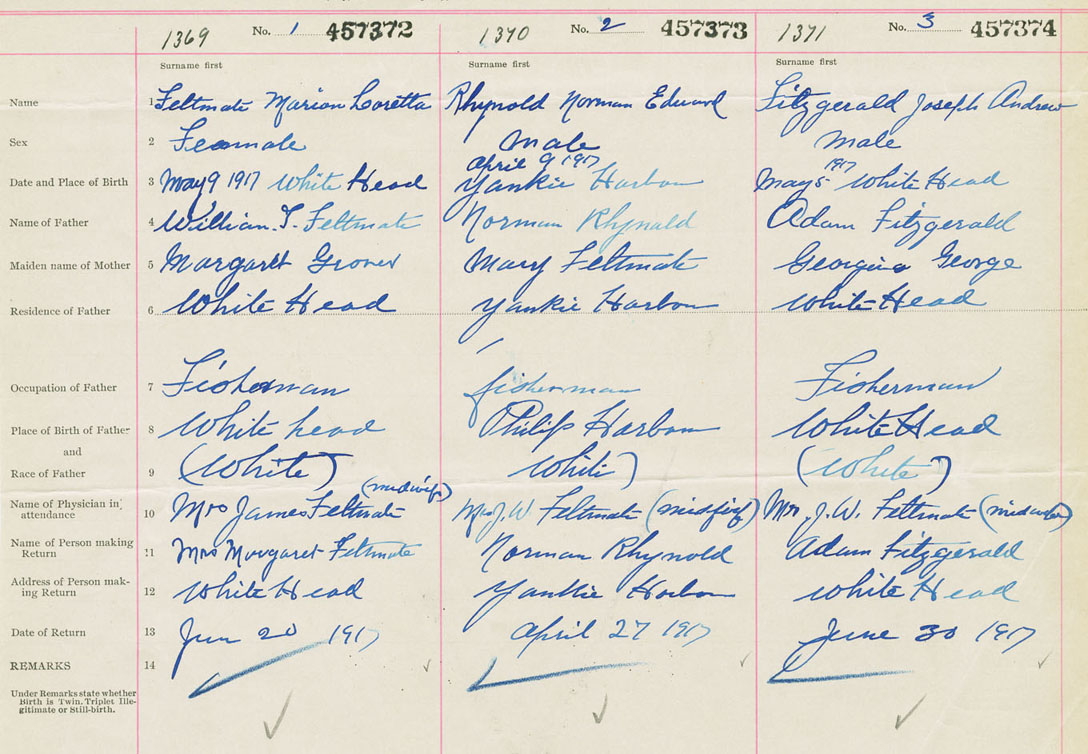 1369 No. 1 457372 1370 No. 2 457373 1371 No. 3 457374
Surname first Surname first Surname first
Name 1 Feltmate Marion Loretta Rhynold Norman Edward Fitzgerald Joseph Andrew
Sex 2 Feamale Male Male
April 9 1917 1917
Date and Place of Birth 3 May 9 1917 White Head Yankie Harbour May 5 White Head
Name of Father 4 William. T. Feltmate Norman Rhynald Adam Fitzgerald
Maiden name of Mother 5 Margaret Grover Mary Feltmate Georgina George
Residence of Father 6 White Head Yankie Harbour White Head
Occupation of Father 7 Fisherman fisherman Fisherman
Place of Birth of Father 8 White head Philips Harbour White Head
and
Race of Father 9 (White) White) (White)
(midwife)
Name of Physician in attendance 10 Mrs James Feltmate Mrs J. W. Feltmate (midwife) Mrs J. W. Feltmate (midwife)
Name of Person making Return 11 Mrs Margaret Feltmate Norman Rhynold Adam Fitzgerald
Address of Person mak-ing Return 12 White Head Yankie Harbour White Head
Date of Return 13 Jun 20 1917 April 27 1917 June 30 1917
REMARKS 14
Under Remarks state whether
Birth is Twin. Triplet Ille-
gitimate or Still-birth.